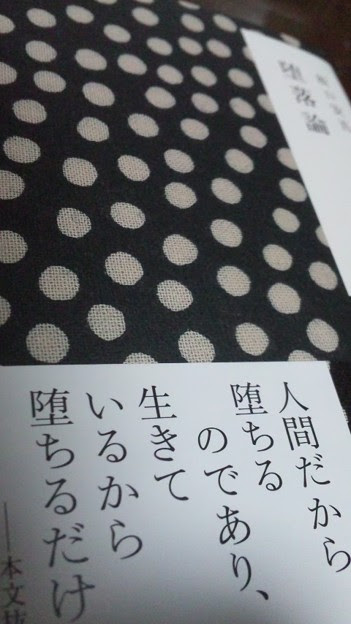 坂口安吾
堕落論
人間だから
堕ちる
のであり、
生きて
いるから
堕ちるだけ
――本文